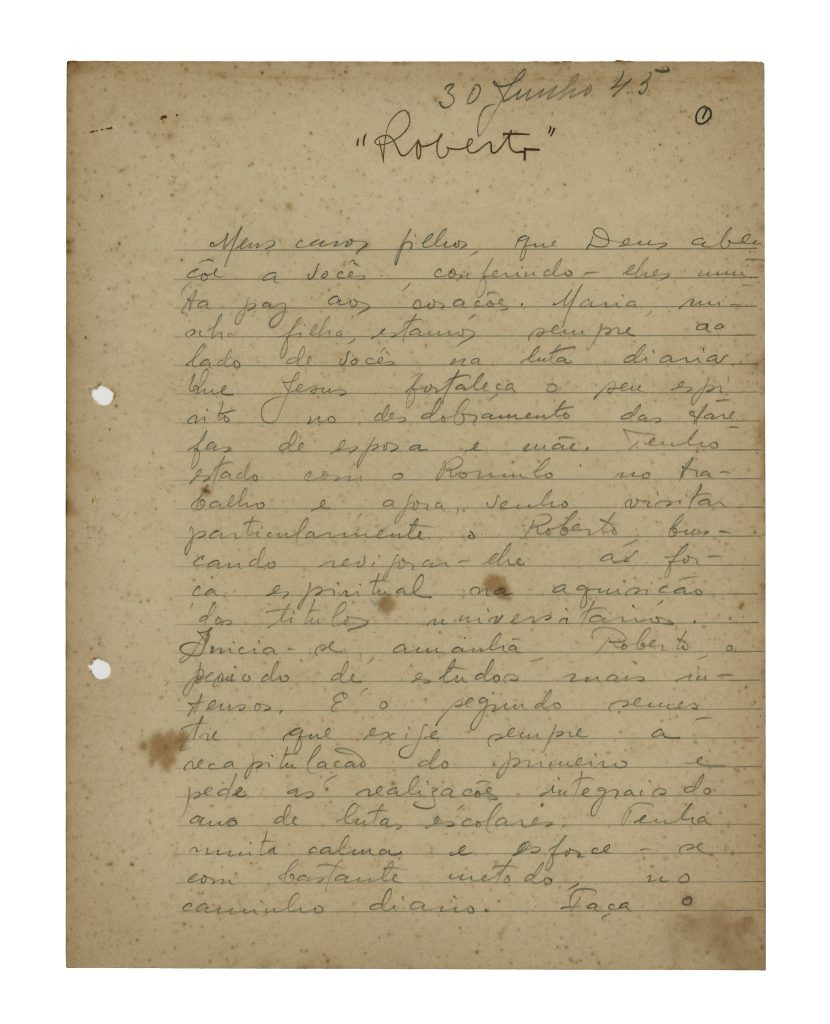 30 Junho 45
1
"Roberto"
Meus caros filhos, que Deus aben
çõe a vocês, conferindo-lhes mui-
ta paz aos corações. Maria, mi-
nha filha, estamos sempre ao
lado de vocês na luta diaria.
Que Jesus fortaleça o seu espi
rito no desdobramento das tare
fas de esposa e mãe. Tenho
estado com o Romulo no tra-
balho e, agora, venho visitar
particularmente o Roberto, bus-
cando revigorar-lhe as for-
ça espiritual na aquisição
dos titulos universitarios.
Inicia-se, amanhã, Roberto, o
periodo de estudos mais in-
tensos. É o segundo semes
tre que exige sempre a
recapitulação do primeiro e
pede as realizações integrais do
ano de lutas escolares. Tenha
muita calma e esforce-se
com bastante metodo, no
caminho diario. Faça o